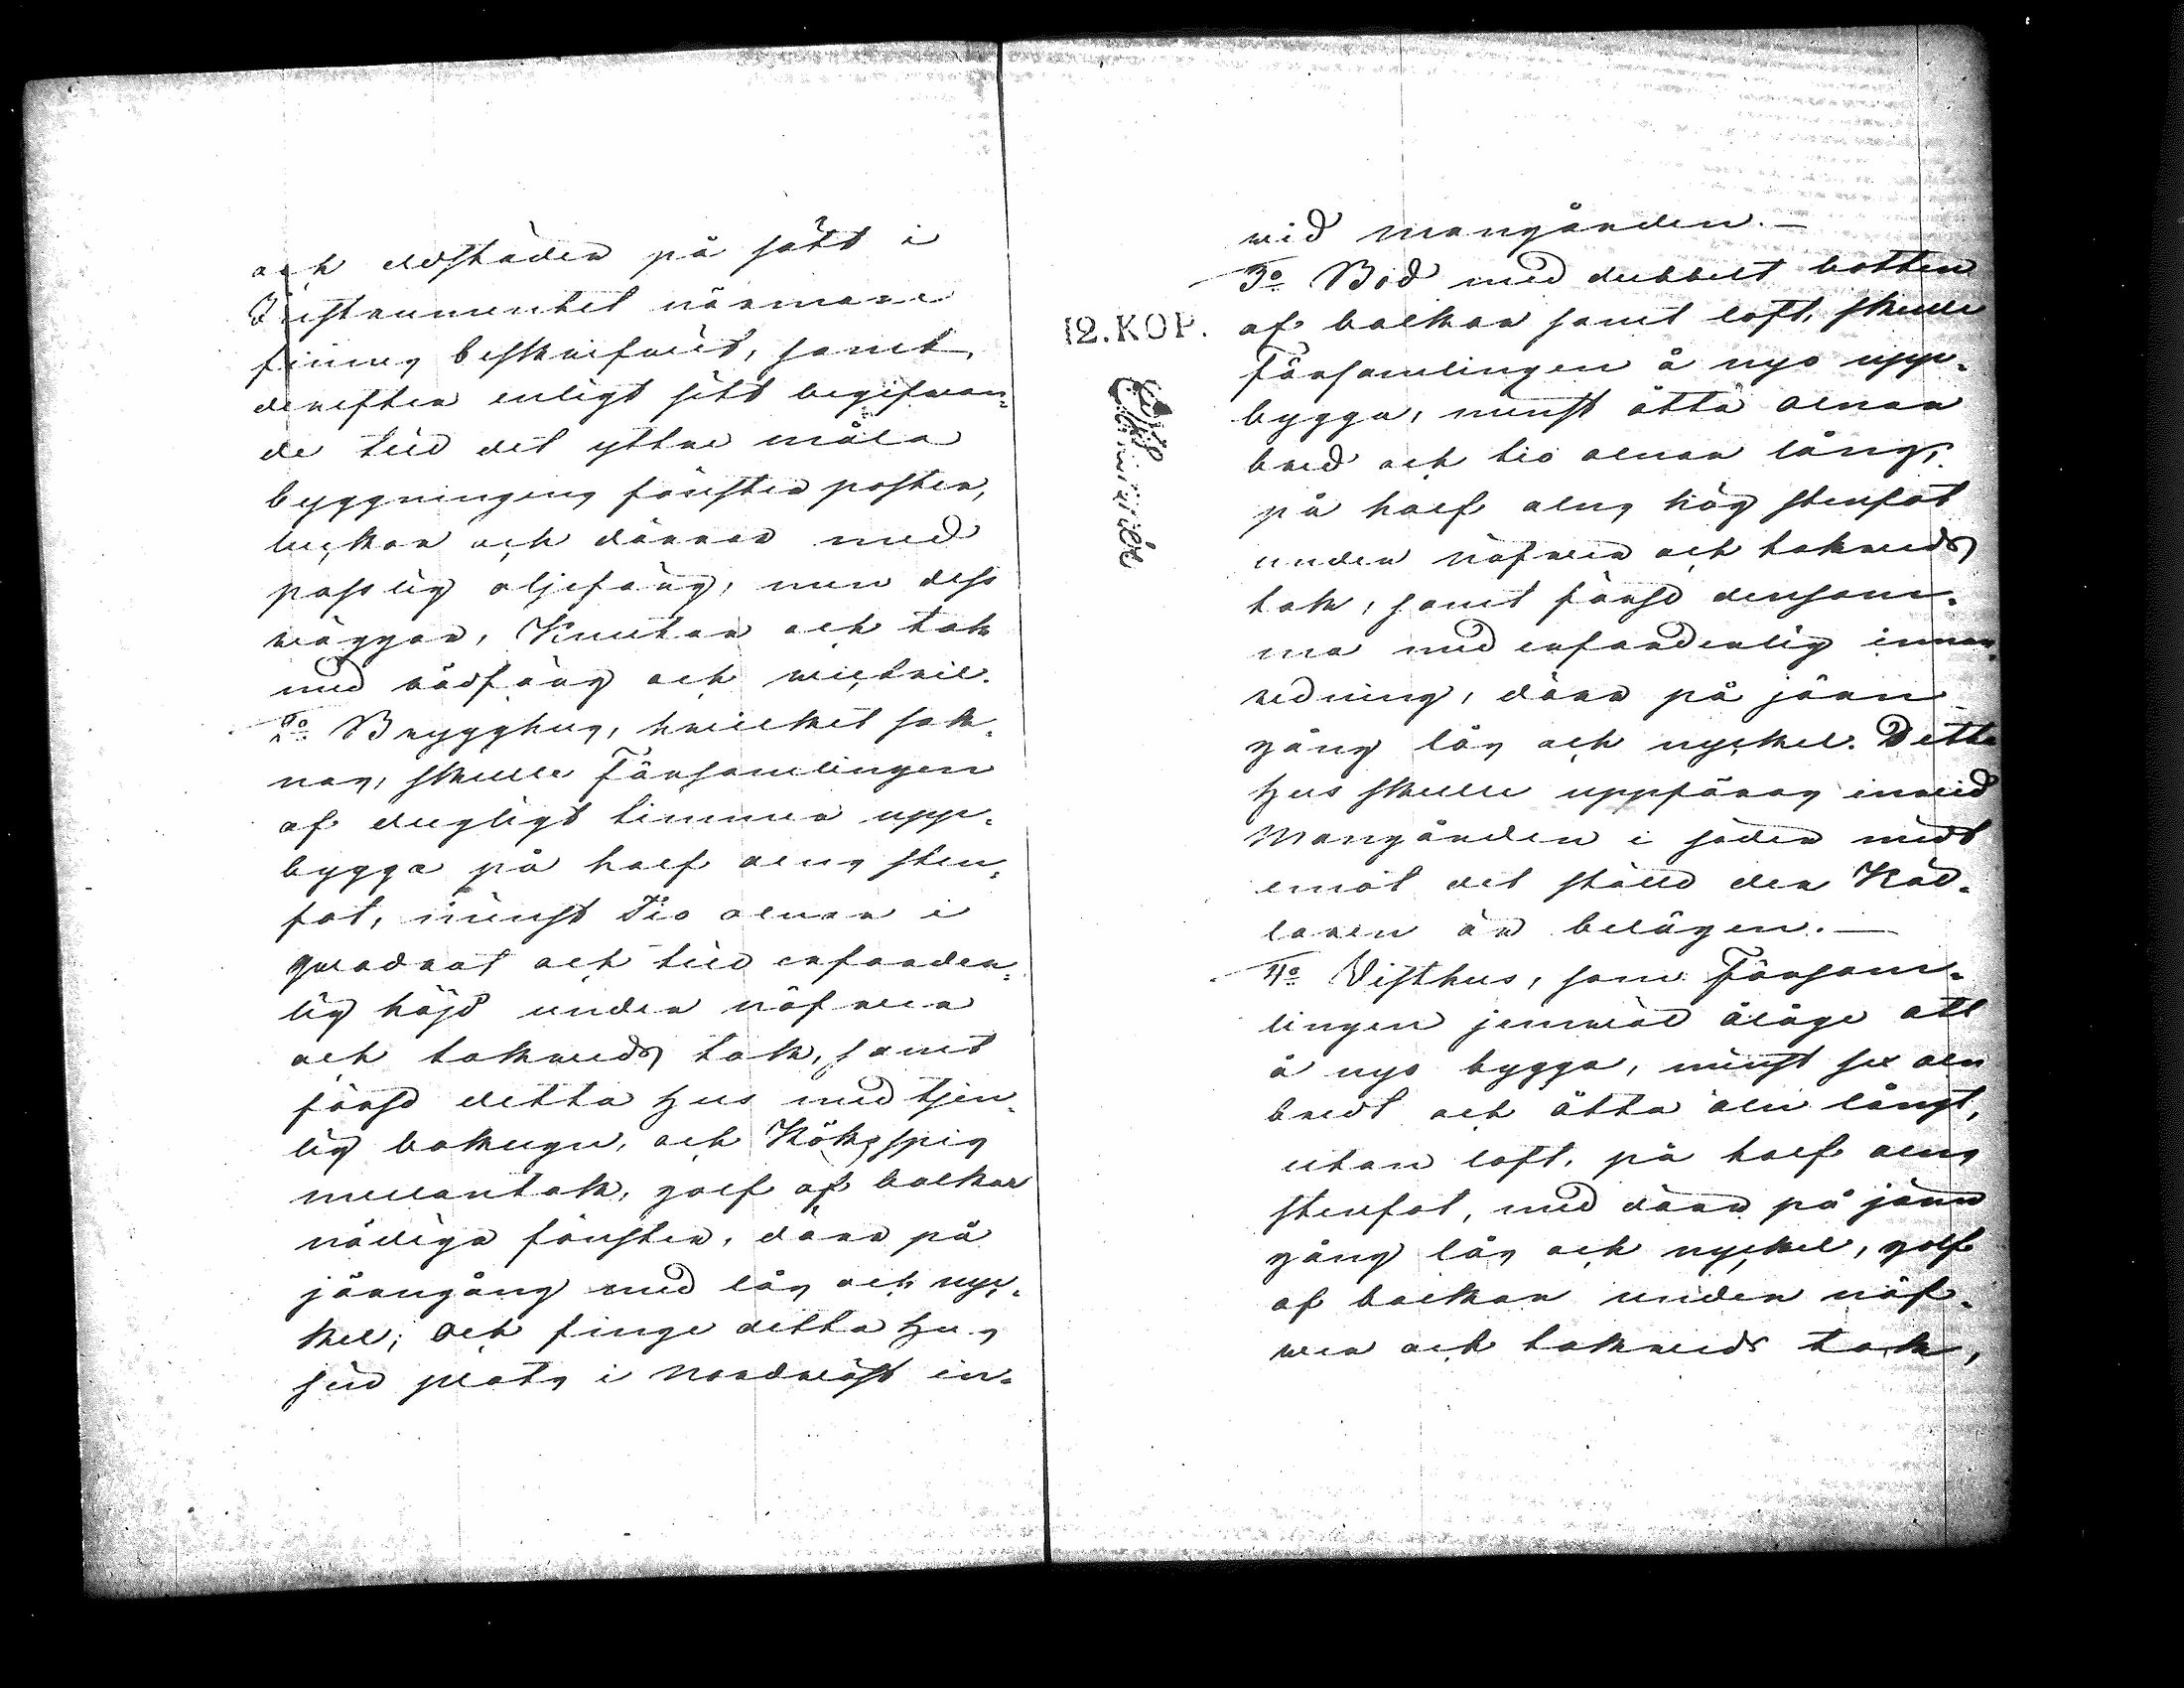 och eldstäder på sätt i
Instrumentet närmare
finnes beskrifwit, samt
derefter enligt sitt begifwan-
de till det yttre måla
byggningens fönster poster,
luckor och dörrar med
passlig oljefärg, men dess
wäggar, Knutar och tak
med rödfärg och wictril.
2o Brygghus, hwilket sak-
nas, skulle Församlingen
af dugligt timmer upp-
bygga på half alns sten-
fot, minst Tio alnar i
quadrat och till erforder-
lig höjd under näfwer
och takweds tak, samt
förse detta hus med tjen-
lig bakugn, och Köksspis
mellantak, golf af balkar
nödiga fönster, dörr på
järngång med lås och nyc-
kel; Och finge detta hus
sin plats i Nordwäst in-
wid mangården.
3o Bod med dubbelt botten
12.KOP. af balkar samt loft, skulle
Församlingen å nyo upp-
bygga, minst åtta alnar
bred och tio alnar lång,
på half alns hög stenfot
under näfwer och takweds
tak, samt förse densam-
ma med erforderlig inrea-
redning, dörr på järn
gång lås och nyckel. Detta
hus skulle uppföras inwid
Mangården i söder midt
emot det ställe der Käl-
laren är belägen.
4o Visthus, som Försam-
lingen jemwäl ålåge att
å nyo bygga, minst sex aln
bredt och åtta aln långt,
utan loft, på half alns
stenfot, med dörr på järn
gång lås och nyckel, golf
af balkar under näf-
wer och takweds tak,